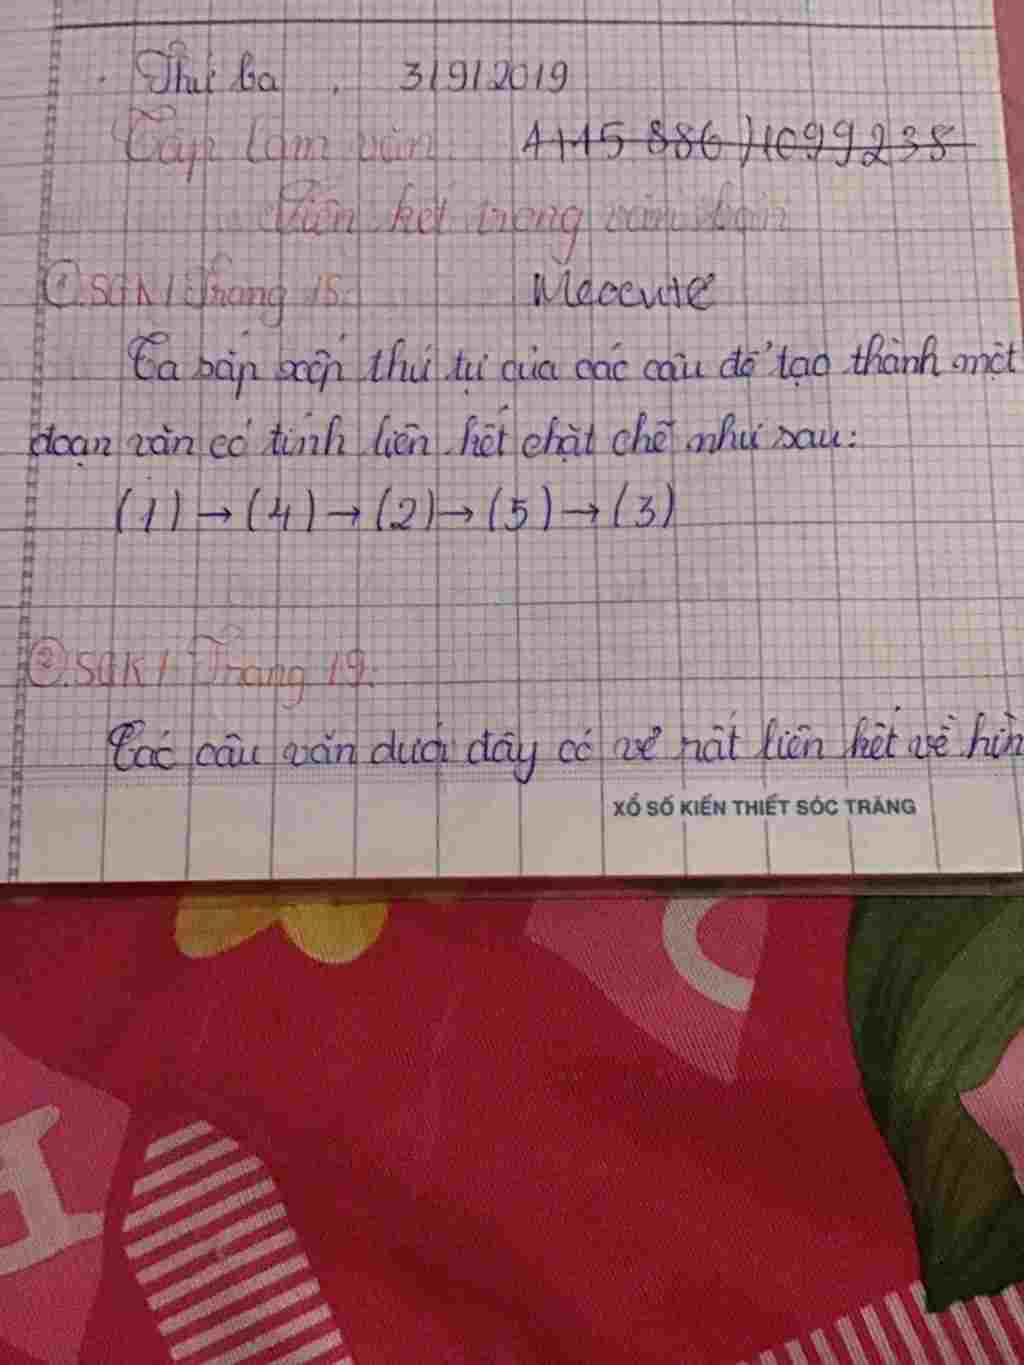 Thứ ba , 3/9/2019
Tập làm văn.
Liên kết trong văn bản
① SGK / Trang 15: Meocute
Ta sắp xếp thứ tự của các câu để tạo thành một
đoạn văn có tính liên kết chặt chẽ như sau:
(1) → (4) → (2) → (5) → (3)
②. SGK / Trang 19:
Các câu văn dưới đây có vẻ rất liên kết về hìn
XỔ SỐ KIẾN THIẾT SÓC TRĂNG